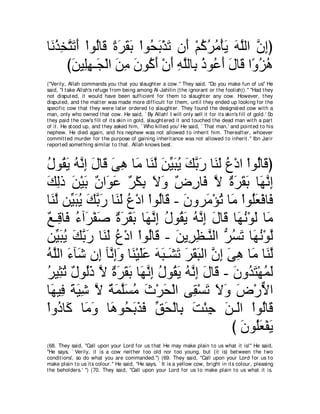 (إِنَّ اللَّهَ يَأْمُرُكُمْ أَن تَذْبَحُواْ بَقَرَةً قَالُواْ أَتَتَّخِذُنَا
هُزُوًا قَالَ أَعُوذُ بِاللَّهِ أَنْ أَكُونَ مِنَ الْجَـهِلِينَ)
("Verily, Allah commands you that you slaughter a cow.'' They said, "Do you make fun of us'' He said, "I take Allah's refuge from being among Al-Jahilin (the ignorant or the foolish)).'' "Had they not disputed, it would have been sufficient for them to slaughter any cow. However, they disputed, and the matter was made more difficult for them, until they ended up looking for the specific cow that they were later ordered to slaughter. They found the designated cow with a man, only who owned that cow. He said, `By Allah! I will only sell it for its skin's fill of gold.' So they paid the cow's fill of its skin in gold, slaughtered it and touched the dead man with a part of it. He stood up, and they asked him, `Who killed you' He said, `That man,' and pointed to his nephew. He died again, and his nephew was not allowed to inherit him. Thereafter, whoever committed murder for the purpose of gaining inheritance was not allowed to inherit.'' Ibn Jarir reported something similar to that. Allah knows best.
(قَالُواْ ادْعُ لَنَا رَبَّكَ يُبَيِّنَ لَّنَا مَا هِىَ قَالَ إِنَّهُ يَقُولُ
إِنَّهَا بَقَرَةٌ لاَّ فَارِضٌ وَلاَ بِكْرٌ عَوَانٌ بَيْنَ ذلِكَ
فَافْعَلُواْ مَا تُؤْمَرونَ - قَالُواْ ادْعُ لَنَا رَبَّكَ يُبَيِّن لَّنَا
مَا لَوْنُهَا قَالَ إِنَّهُ يَقُولُ إِنَّهَا بَقَرَةٌ صَفْرَآءُ فَاقِـعٌ
لَّوْنُهَا تَسُرُّ النَّـظِرِينَ - قَالُواْ ادْعُ لَنَا رَبَّكَ يُبَيِّن
لَّنَا مَا هِىَ إِنَّ البَقَرَ تَشَـبَهَ عَلَيْنَا وَإِنَّآ إِن شَآءَ اللَّهُ
لَمُهْتَدُونَ - قَالَ إِنَّهُ يَقُولُ إِنَّهَا بَقَرَةٌ لاَّ ذَلُولٌ تُثِيرُ
الاٌّرْضَ وَلاَ تَسْقِى الْحَرْثَ مُسَلَّمَةٌ لاَّ شِيَةَ فِيهَا
قَالُواْ الـنَ جِئْتَ بِالْحَقِّ فَذَبَحُوهَا وَمَا كَادُواْ
يَفْعَلُونَ )
(68. They said, "Call upon your Lord for us that He may make plain to us what it is!'' He said, "He says, `Verily, it is a cow neither too old nor too young, but (it is) between the two conditions', so do what you are commanded.'') (69. They said, "Call upon your Lord for us to make plain to us its colour.'' He said, "He says, `It is a yellow cow, bright in its colour, pleasing the beholders.' '') (70. They said, "Call upon your Lord for us to make plain to us what it is.